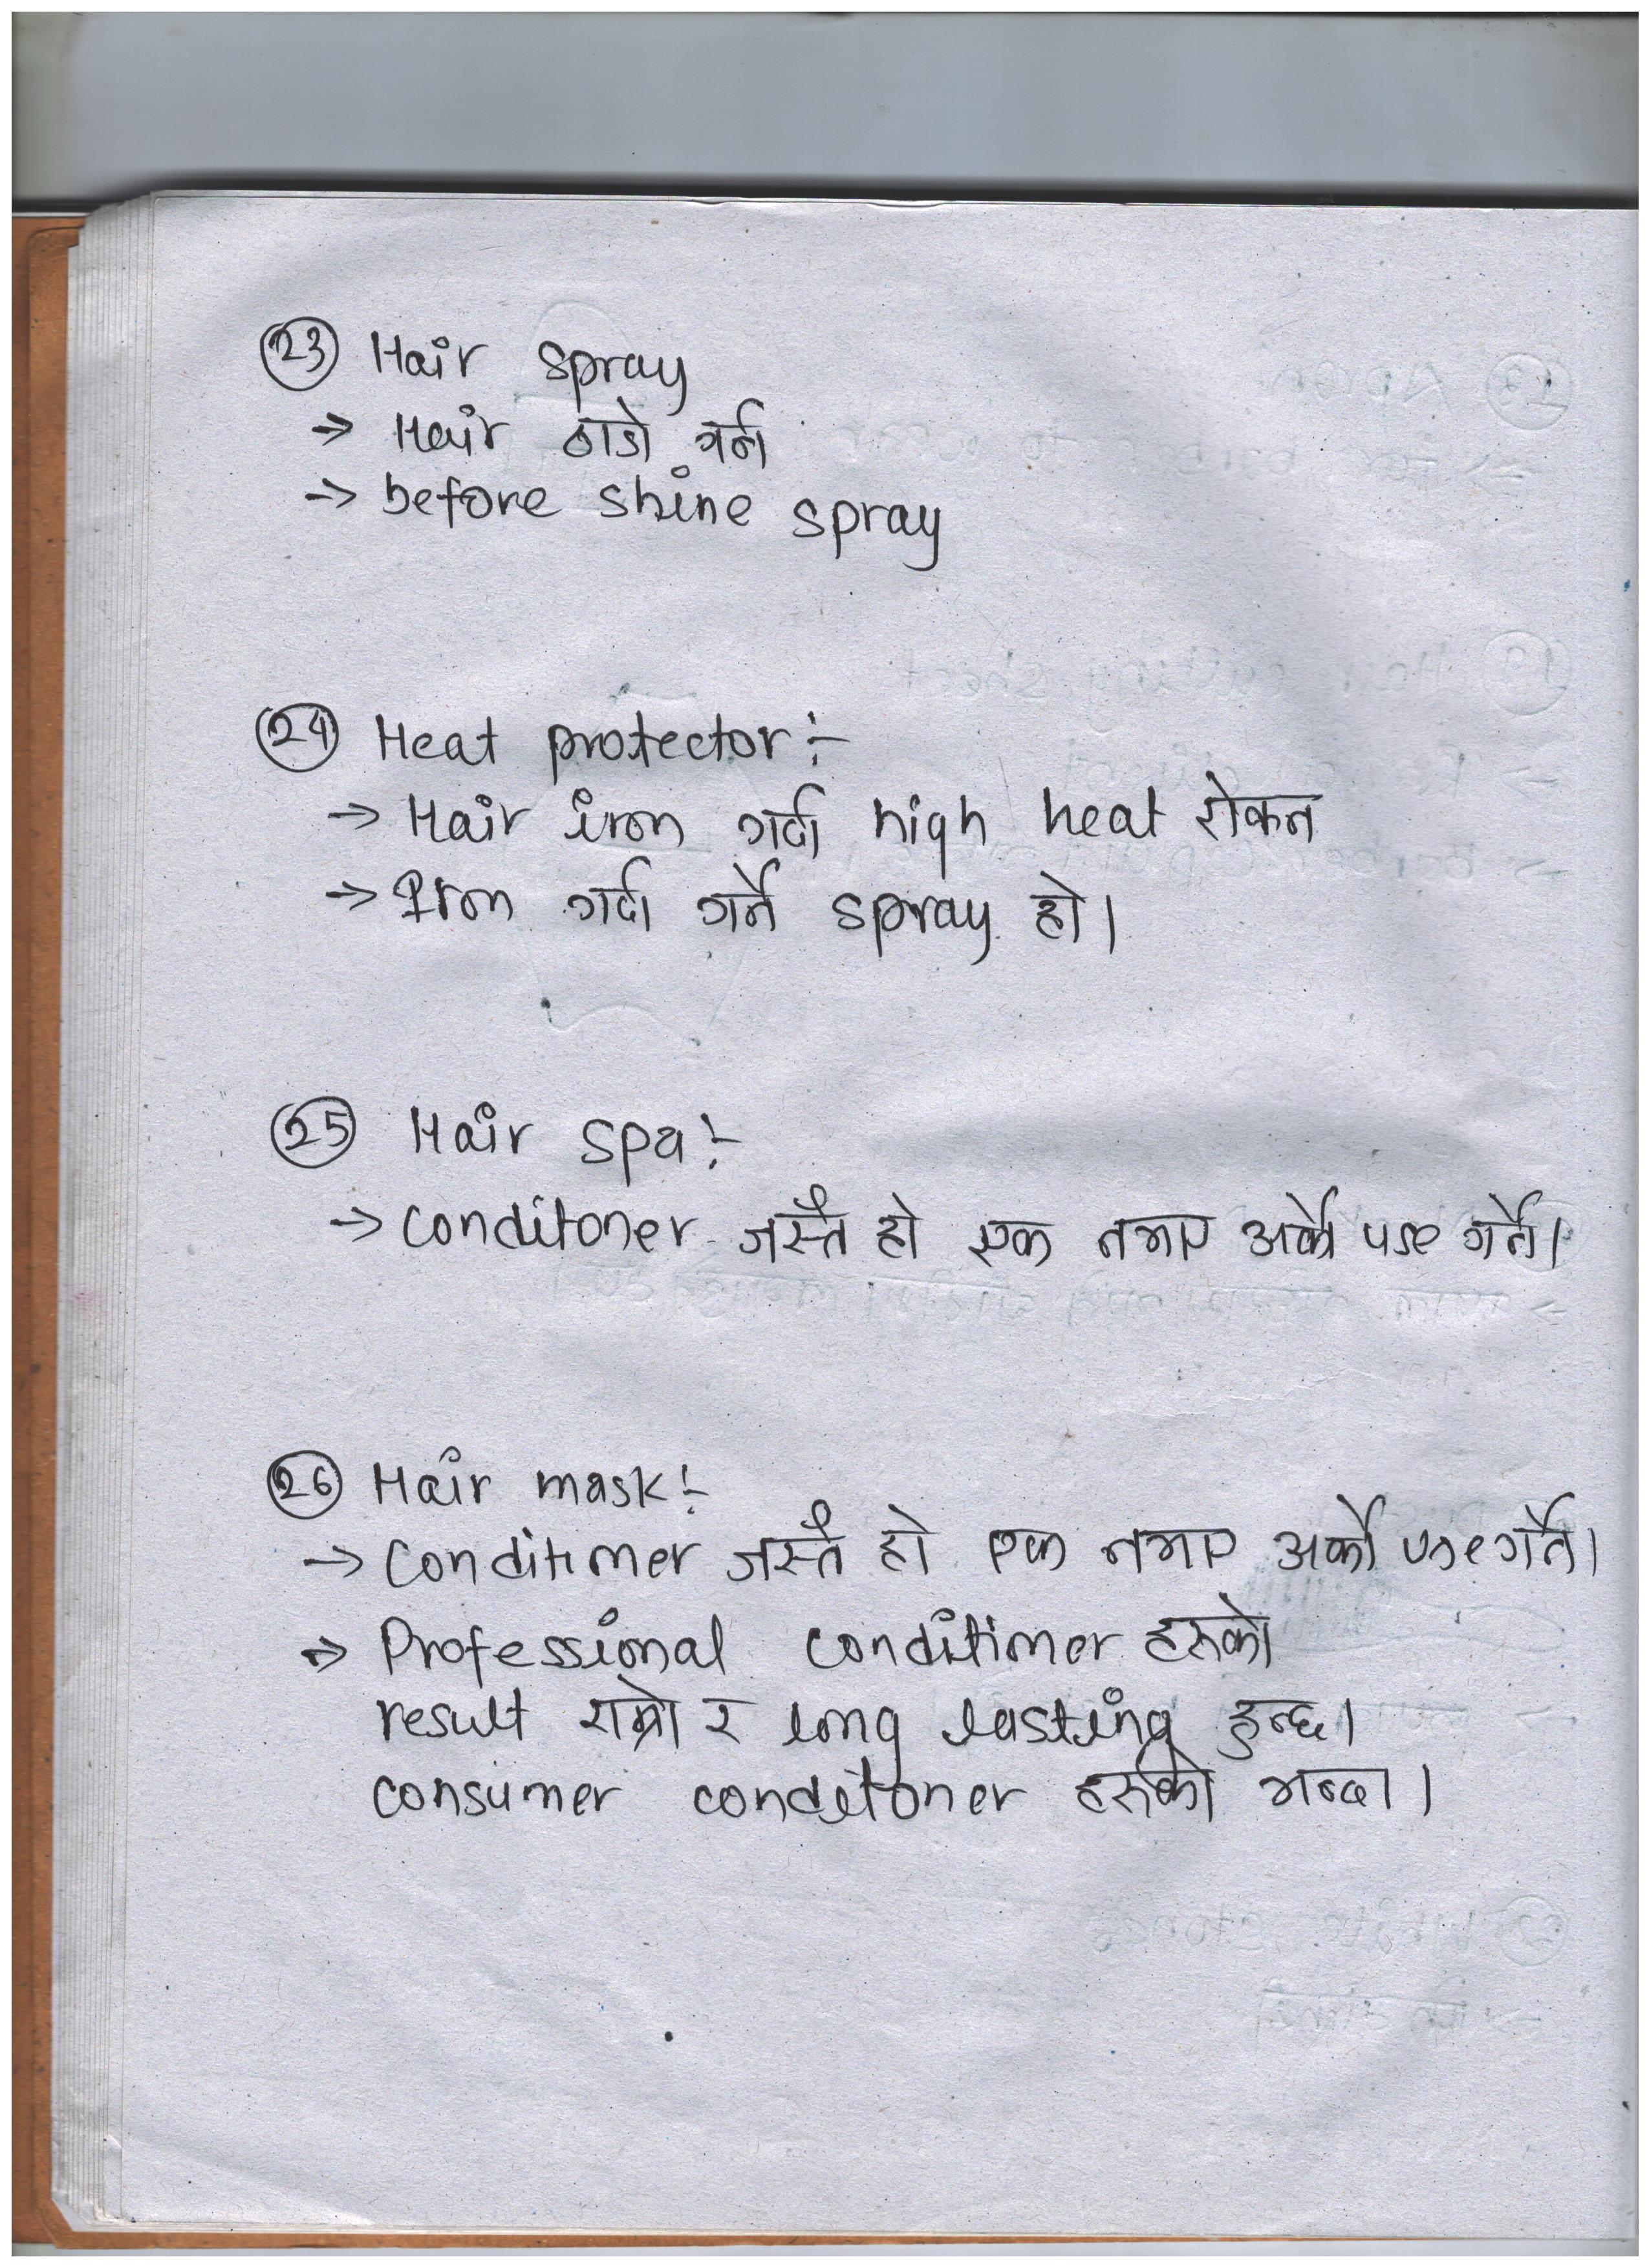 23 Hair spray
→ Hair ठाडो गर्न
→ before shine spray
24 Heat protector :-
→ Hair iron गर्दा high heat रोकन
→ Iron गर्दा गर्ने spray हो।
25 Hair spa :-
→ conditoner जस्तै हो एक नभए अर्को use गर्ने।
26 Hair mask :-
→ Conditimer जस्तै हो एक नभए अर्को use गर्ने।
→ Professional conditimer हरुको
result राम्रो र long lasting हुन्छ।
consumer conditoner हरुको भन्दा।